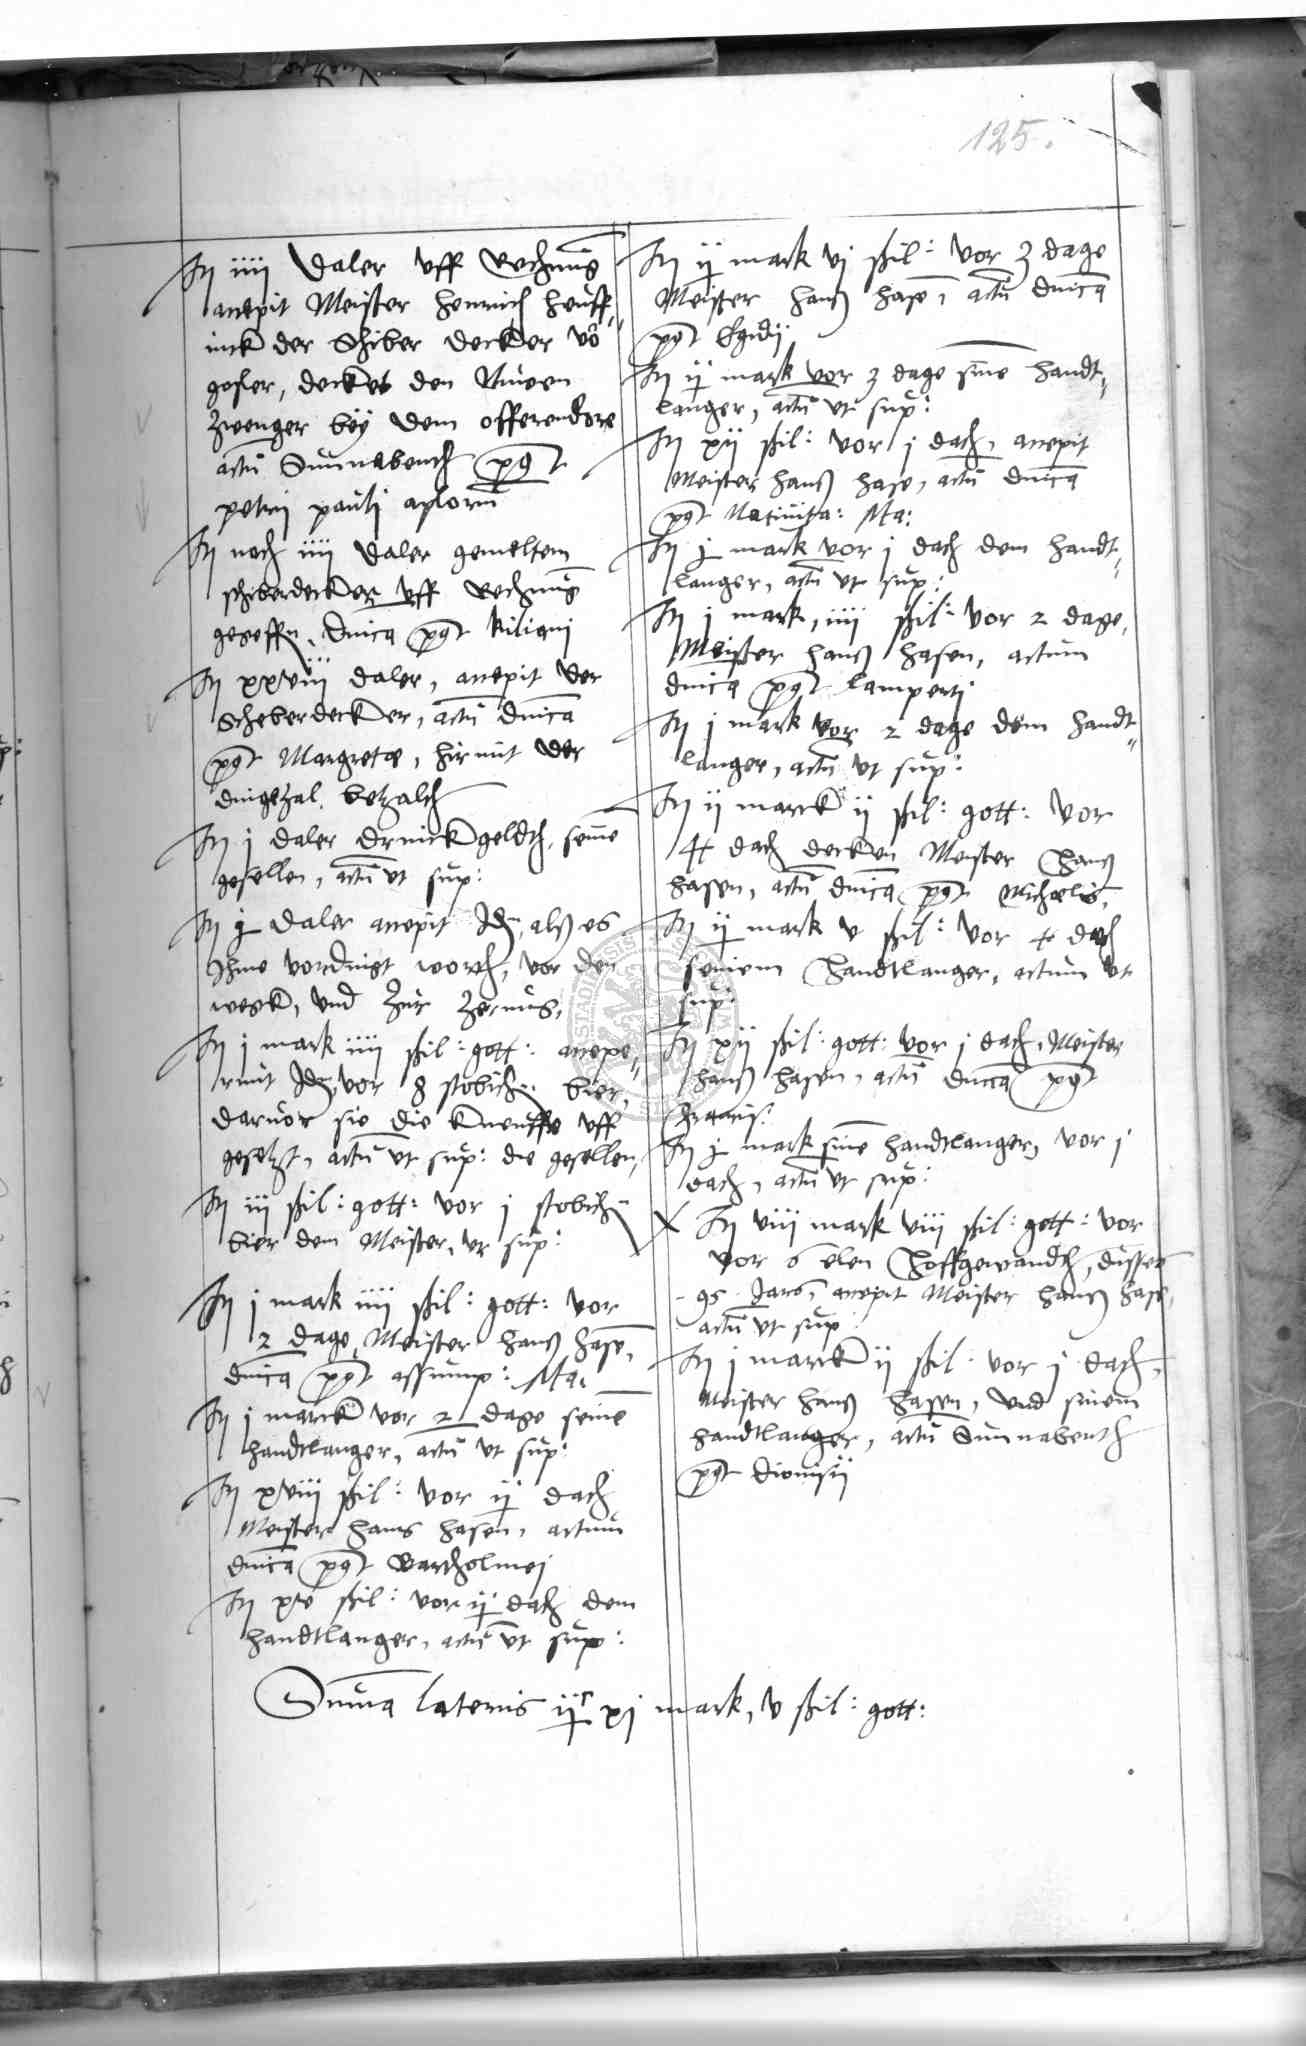 125.
It iiii Daler uff Rechnu͞g
accepit Meister Henrich Heuff„
inck der Schiber decker vō
goslar, decket den Nuwen
Zwenger bey dem offerendore
actū Sunnabendh pꝰt
petri pauli aplorū
It noch iiii Daler gemeltem
schiberdecker uff Rechnu͞g
gegeffn, dnica pꝰt Kiliani
It xxviii daler, accepit der
Scheberdecker, actū dnica
pꝰt Margrete, hirmit der
dingezal betzalth
It j daler drinckgeldth, seinē
gesellen, actū ut sup:
It j daler accepit Idē, alß es
Ihme vordingt worth, vor den
weck, und Zur Zerung,
It j mark iiii ßil: gott: accepe„
runt Idē, vor 8 stobichē bier,
daruor sie die Kneuffe uff
gesetzt, actū ut sup: die gesellen,
It iii ßil: gott: vor j stobichē
bier dem Meister, ut sup:
It j mark iiii ßil: gott: vor
2 dage, Meister Hanß Hasē,
dnica pꝰt assump: Ma:
It j marck vor 2 dage seinē
handtlanger, actū ut sup:
It xviii ßil: vor ij dach
Meister Hans Hasen, actum
dnica pꝰt Bartholmei
It xv ßil: vor ij dach dem
handtlanger, actū ut sup:
It ij mark vj ßil: vor 3 dage
Meister Hanß Hasē, actū dnica
pꝰt Egidij
It ij mark vor 3 dage sinē handt„
langer, actū ut sup:
It xij ßil: vor j dach, accepit
Meister Hanß Hase, actū dnica
pꝰt Natiuita: Ma:
It j mark vor j dach dem handt„
langer, actū ut sup:
It j mark, iiii ßil: vor 2 dage,
Meister Hanß Hasen, actum
dnica pꝰt Lamperti
It j mark vor 2 dage dem handt„
langer, actū ut sup:
It ij marck ij ßil: gott: vor
4 dach decken Meister Hanß
Hasen, actū dnica pꝰt Michaelis,
It ij mark v ßil: vor 4 dach
seinem Handtlanger, actum ut
sup:
It xij ßil: gott: vor j dach, Meister
Hanß Hasen, actū dnica pꝰt
It j mark sinē handtlanger, vor j
dach, actū ut sup:
It viii mark viii ßil: gott: vor
vor 6 elen Hoffgewandth, disses
95 Jars, accepit Meister Hanß Hase,
actū ut sup
It j marck ij ßil: vor j dach,
Meister Hanß Hasen, und sinem
handtlanger, actū Sunnabenth
pꝰt Dionisij
Suma lateris ijᶜ xj mark, v ßil: gott: